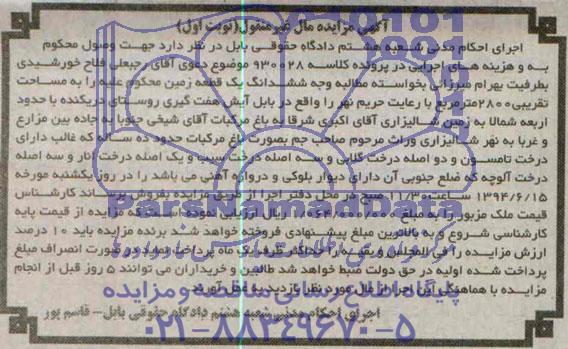 آگهی مزایده مال غیرمنقول(نوبت اول)
اجرای احکام مدنی شعبه هشتم دادگاه حقوقی بابل در نظر دارد جهت وصول محکوم
به و هزینه های اجرایی در پرونده کلاسه 930028 موضوع دعوی آقای رجبعلی فلاح خورشیدی
بطرفیت بهرام میرزائی بخواسته مطالبه وجه ششدانگ یک قطعه زمین محکوم علیه را به مساحت
تقریبی 2800مترمربع با رعایت حریم نهر را واقع در بابل آیش هفت گیری روستای دریکنده با حدود
اربعه شمالا به زمین شالیزاری آقای اکبری شرقا به باغ مرکبات آقای شیخی جنوبا به جاده بین مزارع
و غربا به نهر شالیزاری وراث مرحوم صاحب جم بصورت باغ مرکبات حدود ده ساله که غالب دارای
درخت تامسون و دو اصله درخت گلابی و سه اصله درخت سیب و یک اصله درخت انار و سه اصله
درخت آلوچه که ضلع جنوبی آن دارای دیوار بلوکی و دروازه آهنی می باشد را در روز یکشنبه مورخه
1394/6/15 ساعت 11/30 صبح در محل دفتر اجرا از طریق مزایده بفروش برساند کارشناس
قیمت ملک مزبور را به مبلغ 1/064/000/000 ریال ارزیابی نموده است که مزایده از قیمت پایه
کارشناسی شروع و به بالاترین مبلغ پیشنهادی فروخته خواهد شد برنده مزایده باید 10 درصد
ارزش مزایده را فی المجلس و بقیه را حداکثر ظرف یک ماه پرداخت نماید در صورت انصراف مبلغ
پرداخت شده اولیه در حق دولت ضبط خواهد شد طالبین و خریداران می توانند 5 روز قبل از انجام
مزایده با هماهنگی این اجرا از مال مورد نظر بازدید به عمل آورند
اجرای احکام مدنی شعبه هشتم دادگاه حقوقی بابل- قاسم پور
ParsNamadData
پایگاه اطلاع رسانی مناقصه و مزایده
۰۲۱-۸۸۳۴۹۶۷۰-۵